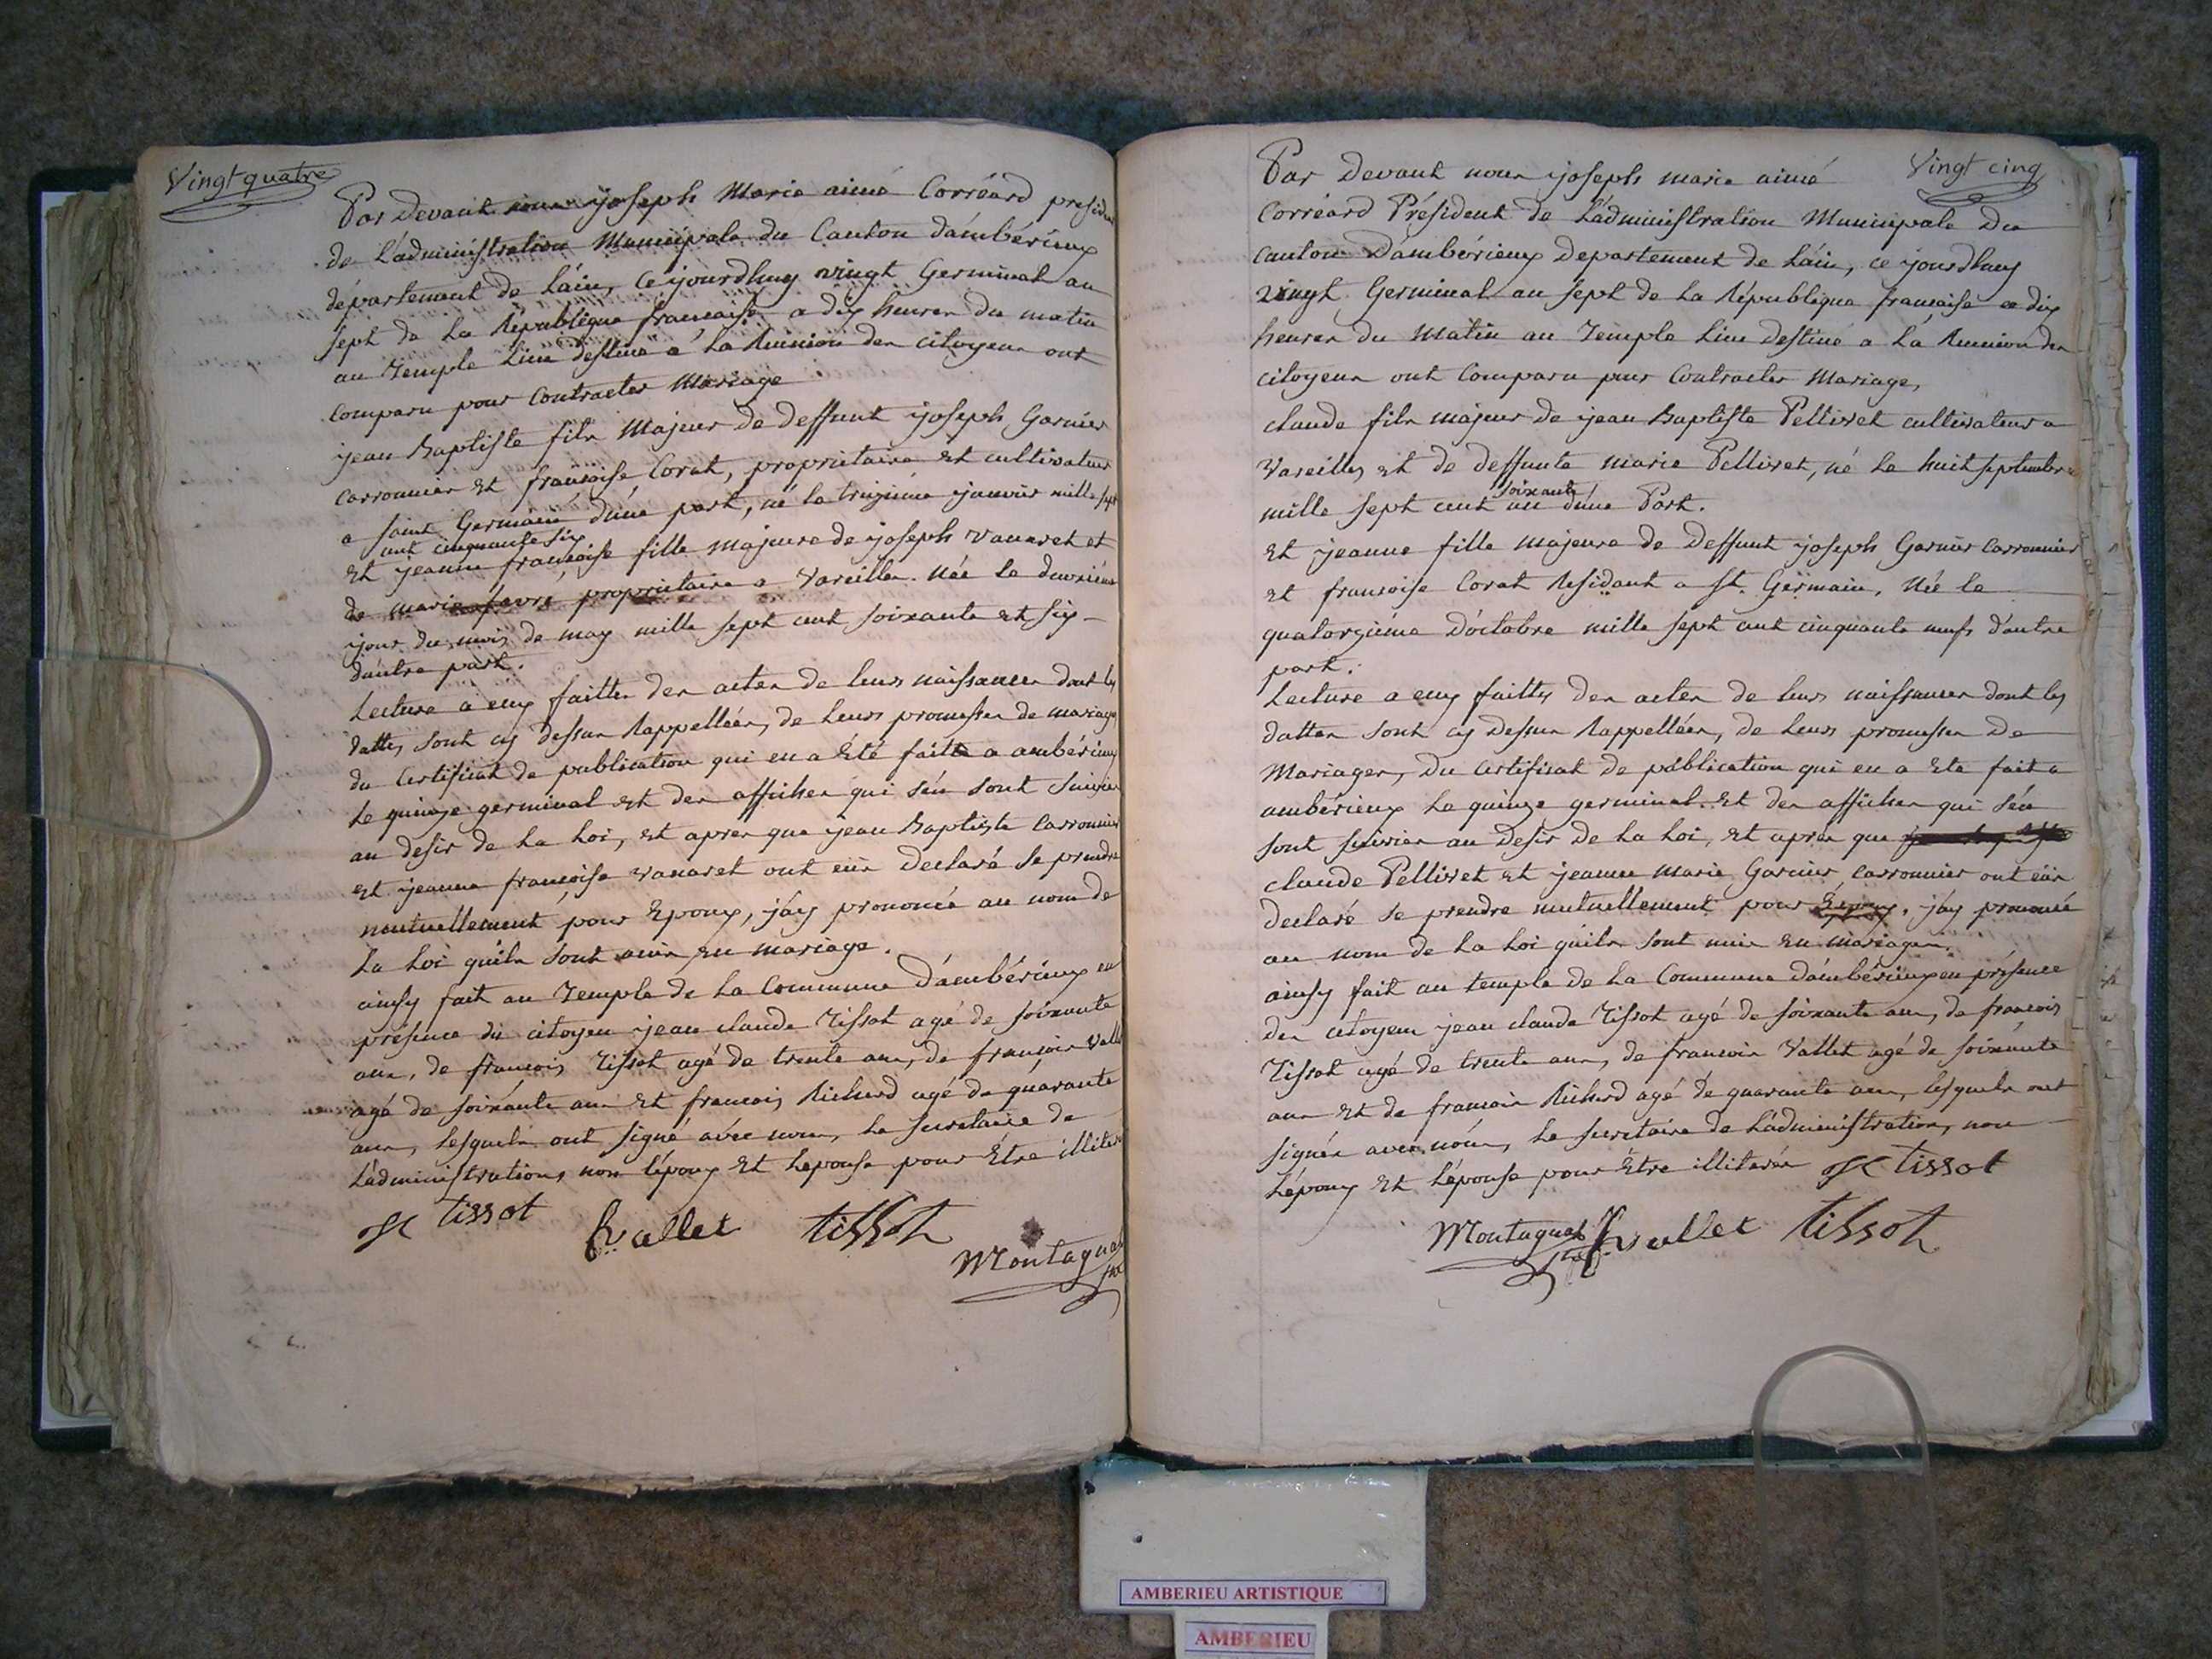 Vingt quatre
Par Devant nous joseph Marie aimé Corréard presiden
de L'administration Municipale du Canton d'ambérieux
département de L'ain, Ce jourdhuy vingt Germinal an
sept de La République francaise a dix heures du matin
au Temple Lieu destiné a La Réunion des citoyens ont
Comparu pour Contracter Mariage
jean Baptiste fils Majeur de deffunt joseph Garnier
Carronnier Et françoise Corat, propriétaire Et cultivateur
a saint Germain d'une part, né le treizieme janvier mille sept
cent cinquante six
Et jeanne françoise fille majeure de joseph Vanaret et
de marie favre propriétaire a Vareilles. Née le deuxième
jour du mois de may mille sept cent soixante Et six
d'autre part.
Lecture a eux faittes des actes de leurs naissances dont les
dattes sont cy dessus Rappellées, de leurs promesses de mariage
du Certificat de publication qui en a Eté faitte a ambérieux
le quinze germinal et des affiches qui s'en sont suivies
au desir de La Loi, et apres que jean Baptiste Carronnier
Et jeanne françoise vanaret ont eûs declaré se prendre
mutuellement pour Epoux, j'ay prononcé au nom de
La Loi quils sont unis en mariage.
ainsy fait au Temple de La Commune D'ambérieux en
présence du citoyen jean claude Tissot agé de soixante
ans, de françois Tissot agé de trente ans, de françois Vall
agé de soixante ans Et francois Richerd agé de quarante
ans, Lesquels ont signé avec nous, Le secretaire de
L'administration, non l'époux Et Lepouse pour Etre illiter
JC tissot
fr vallet
tissot
Montagnat
sre
Vingt cinq
Par Devant nous joseph marie aimé
Corréard Président de L'administration Municipale Du
Canton D'ambérieux Departement de L'ain, ce jourdhuy
vingt Germinal an sept de La République française a dix
heures Du Matin au Temple Lieu Destiné a La Réunion des
citoyens ont Comparu pour Contracter Mariage,
claude fils majeur de jean Baptiste Pellivet cultivateur a
Vareilles Et de deffunte marie Pellivet, né Le huit septembre
soixante
mille sept cent un d'une Part.
Et jeanne fille majeure de Deffunt joseph Garnier Carronnier
et françoise Corat Residant a St. Germain, Née le
quatorzieme D'octobre mille sept cent cinquante neufs d'autre
part.
Lecture a eux faittes des actes de leurs naissances dont les
dattes sont cy Dessus Rappellées, de Leurs promesses De
Mariages, Du Certificat de publication qui en a Eté fait a
ambérieux Le quinze germinal. Et des affiches qui s'en
sont suivies au Desir De La Loi, Et apres que
claude Pellivet et jeanne Marie Garnier Carronnier ont eûs
declaré se prendre mutuellement pour Epoux, j'ay prononcé
au nom de La Loi quils sont unis en mariages.
ainsy fait au temple de La Commune D'ambérieux en présence
des citoyens jean claude Tissot agé de soixante ans, de francois
Tissot agé de trente ans, de francois Vallet agé de soixante
ans et de francois Richerd agé de quarante ans, Lesquels ont
signés avec nous, Le secretaire de L'administration, non
L'époux Et L'épouse pour Etre illiterés
JC tissot
Montagnat
sre
fr vallet
tissot
AMBERIEU ARTISTIQUE
AMBERIEU